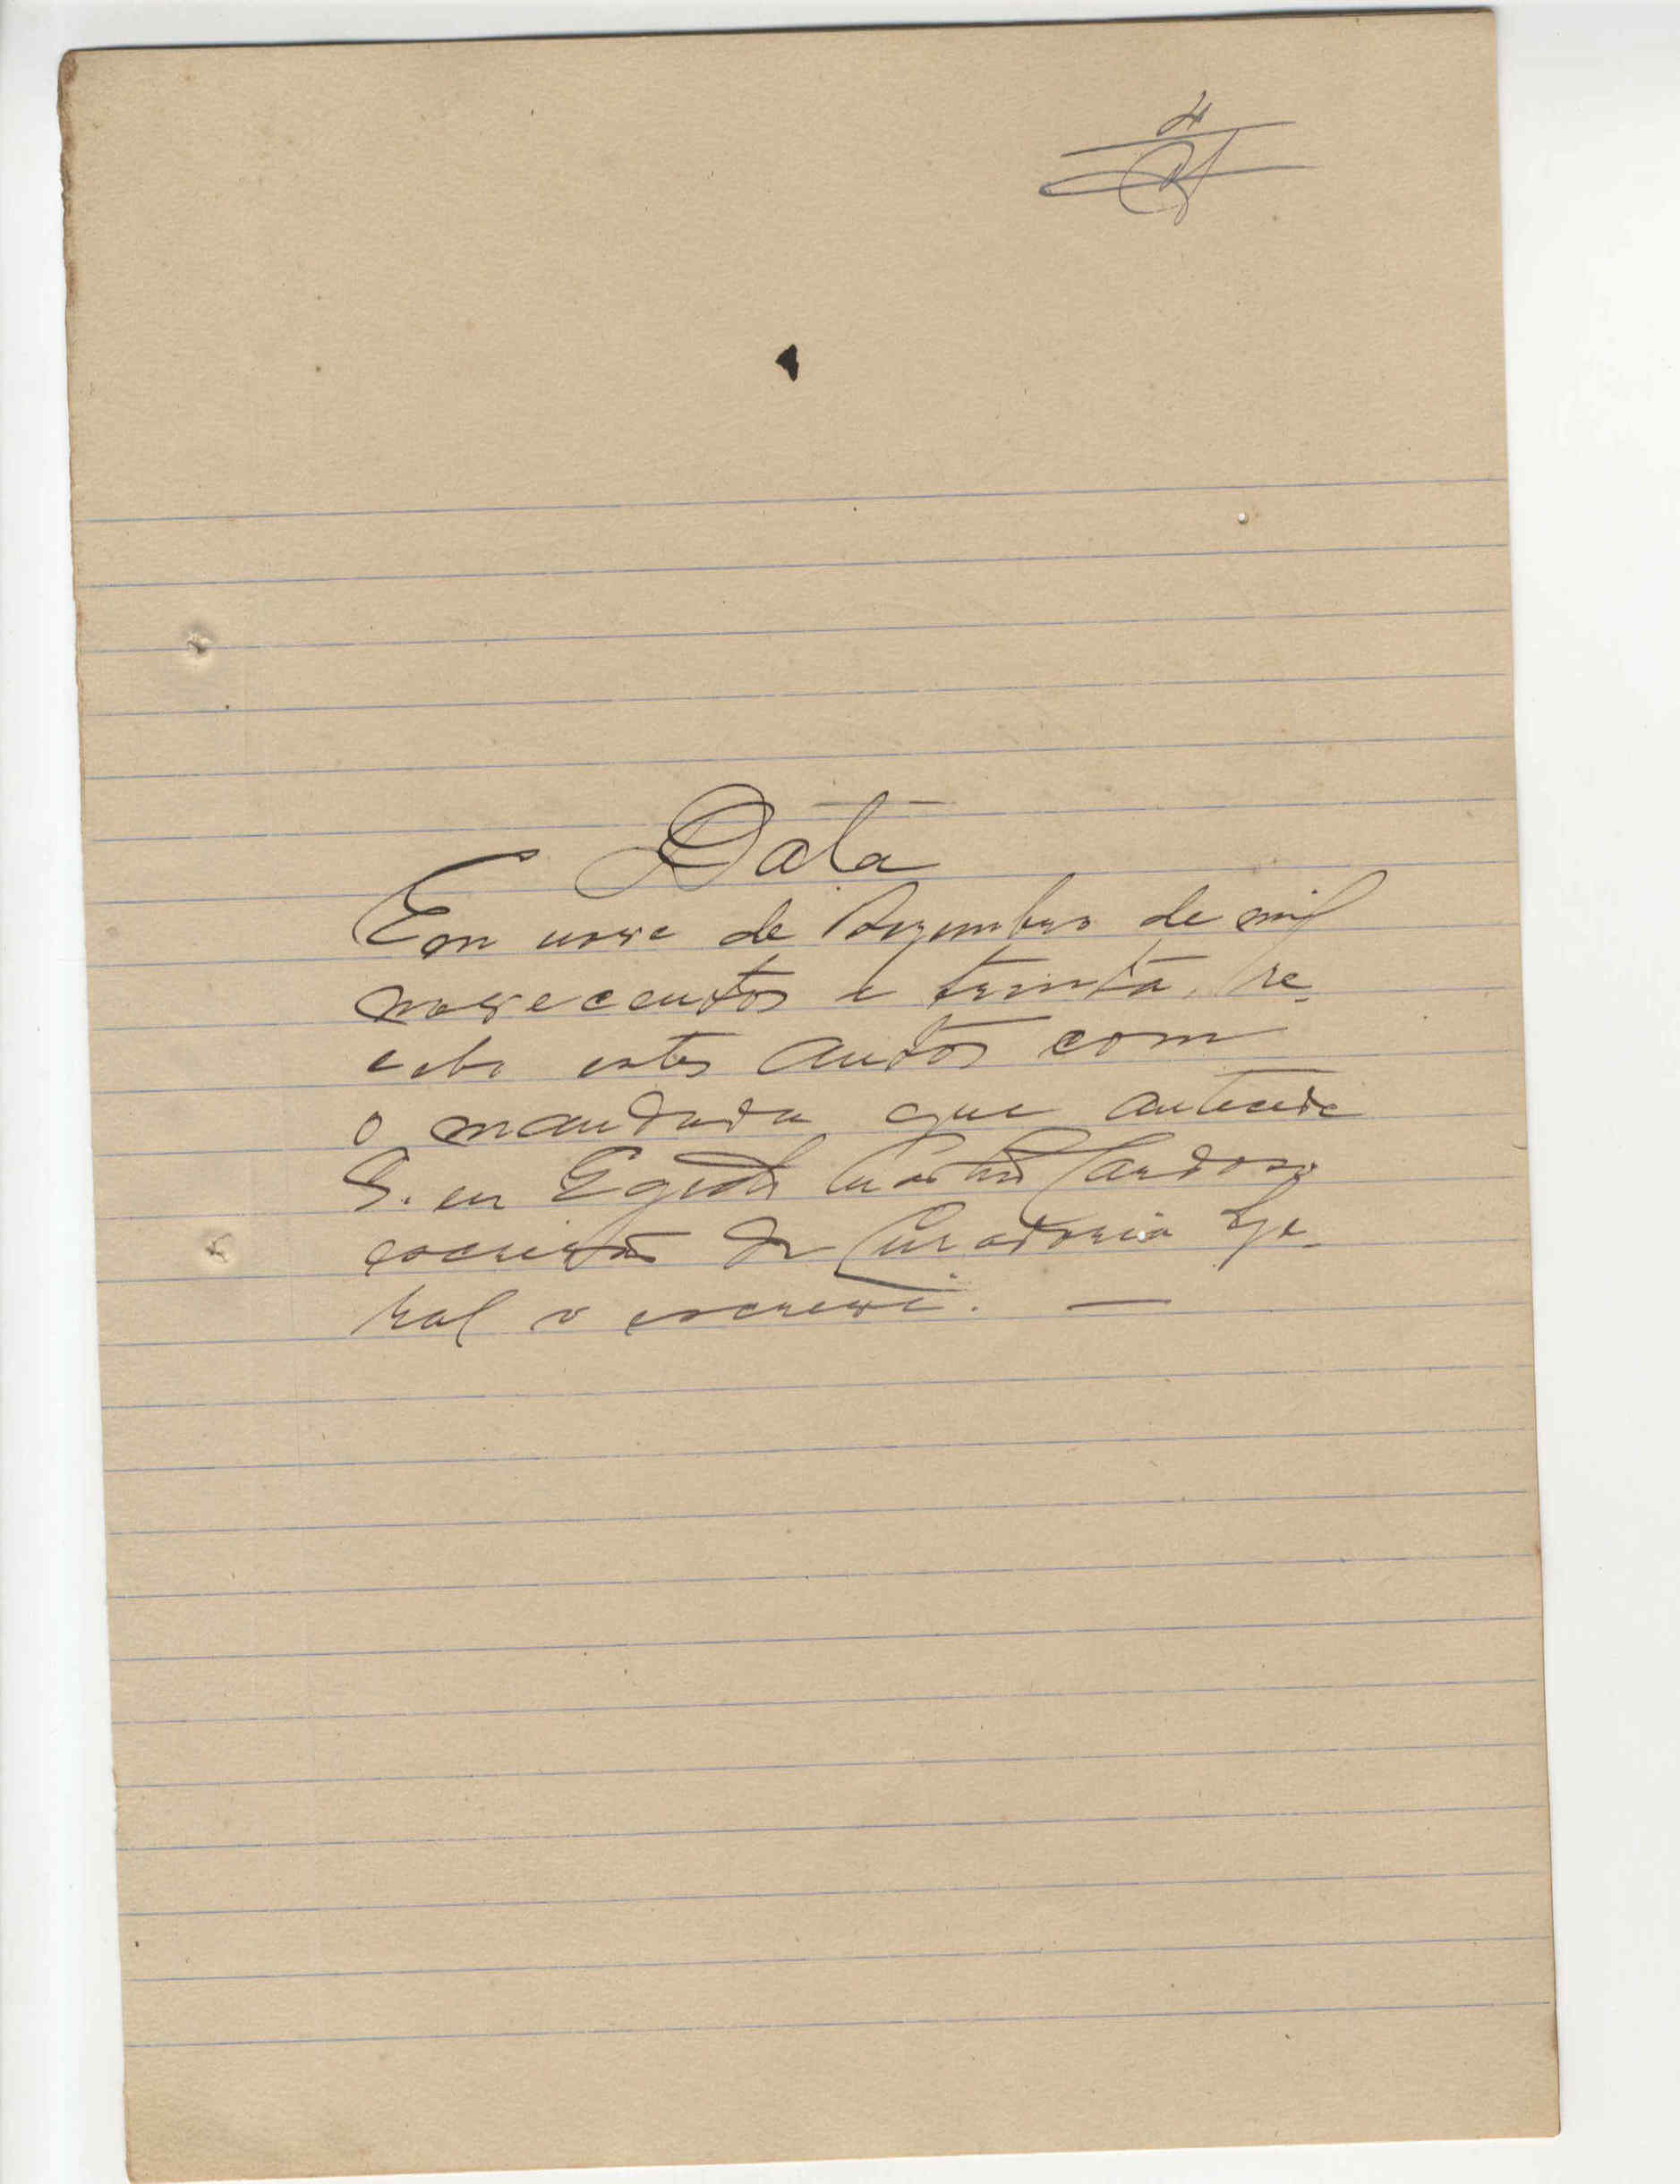 4
Data
Em nove de Dezembro de mil
novecentos e trinta, re-
cebi estes autos com
o mandado que antecede
Eu Egydio Cardoso
escrivão da Curadoria Ge-
ral o escrevi. —